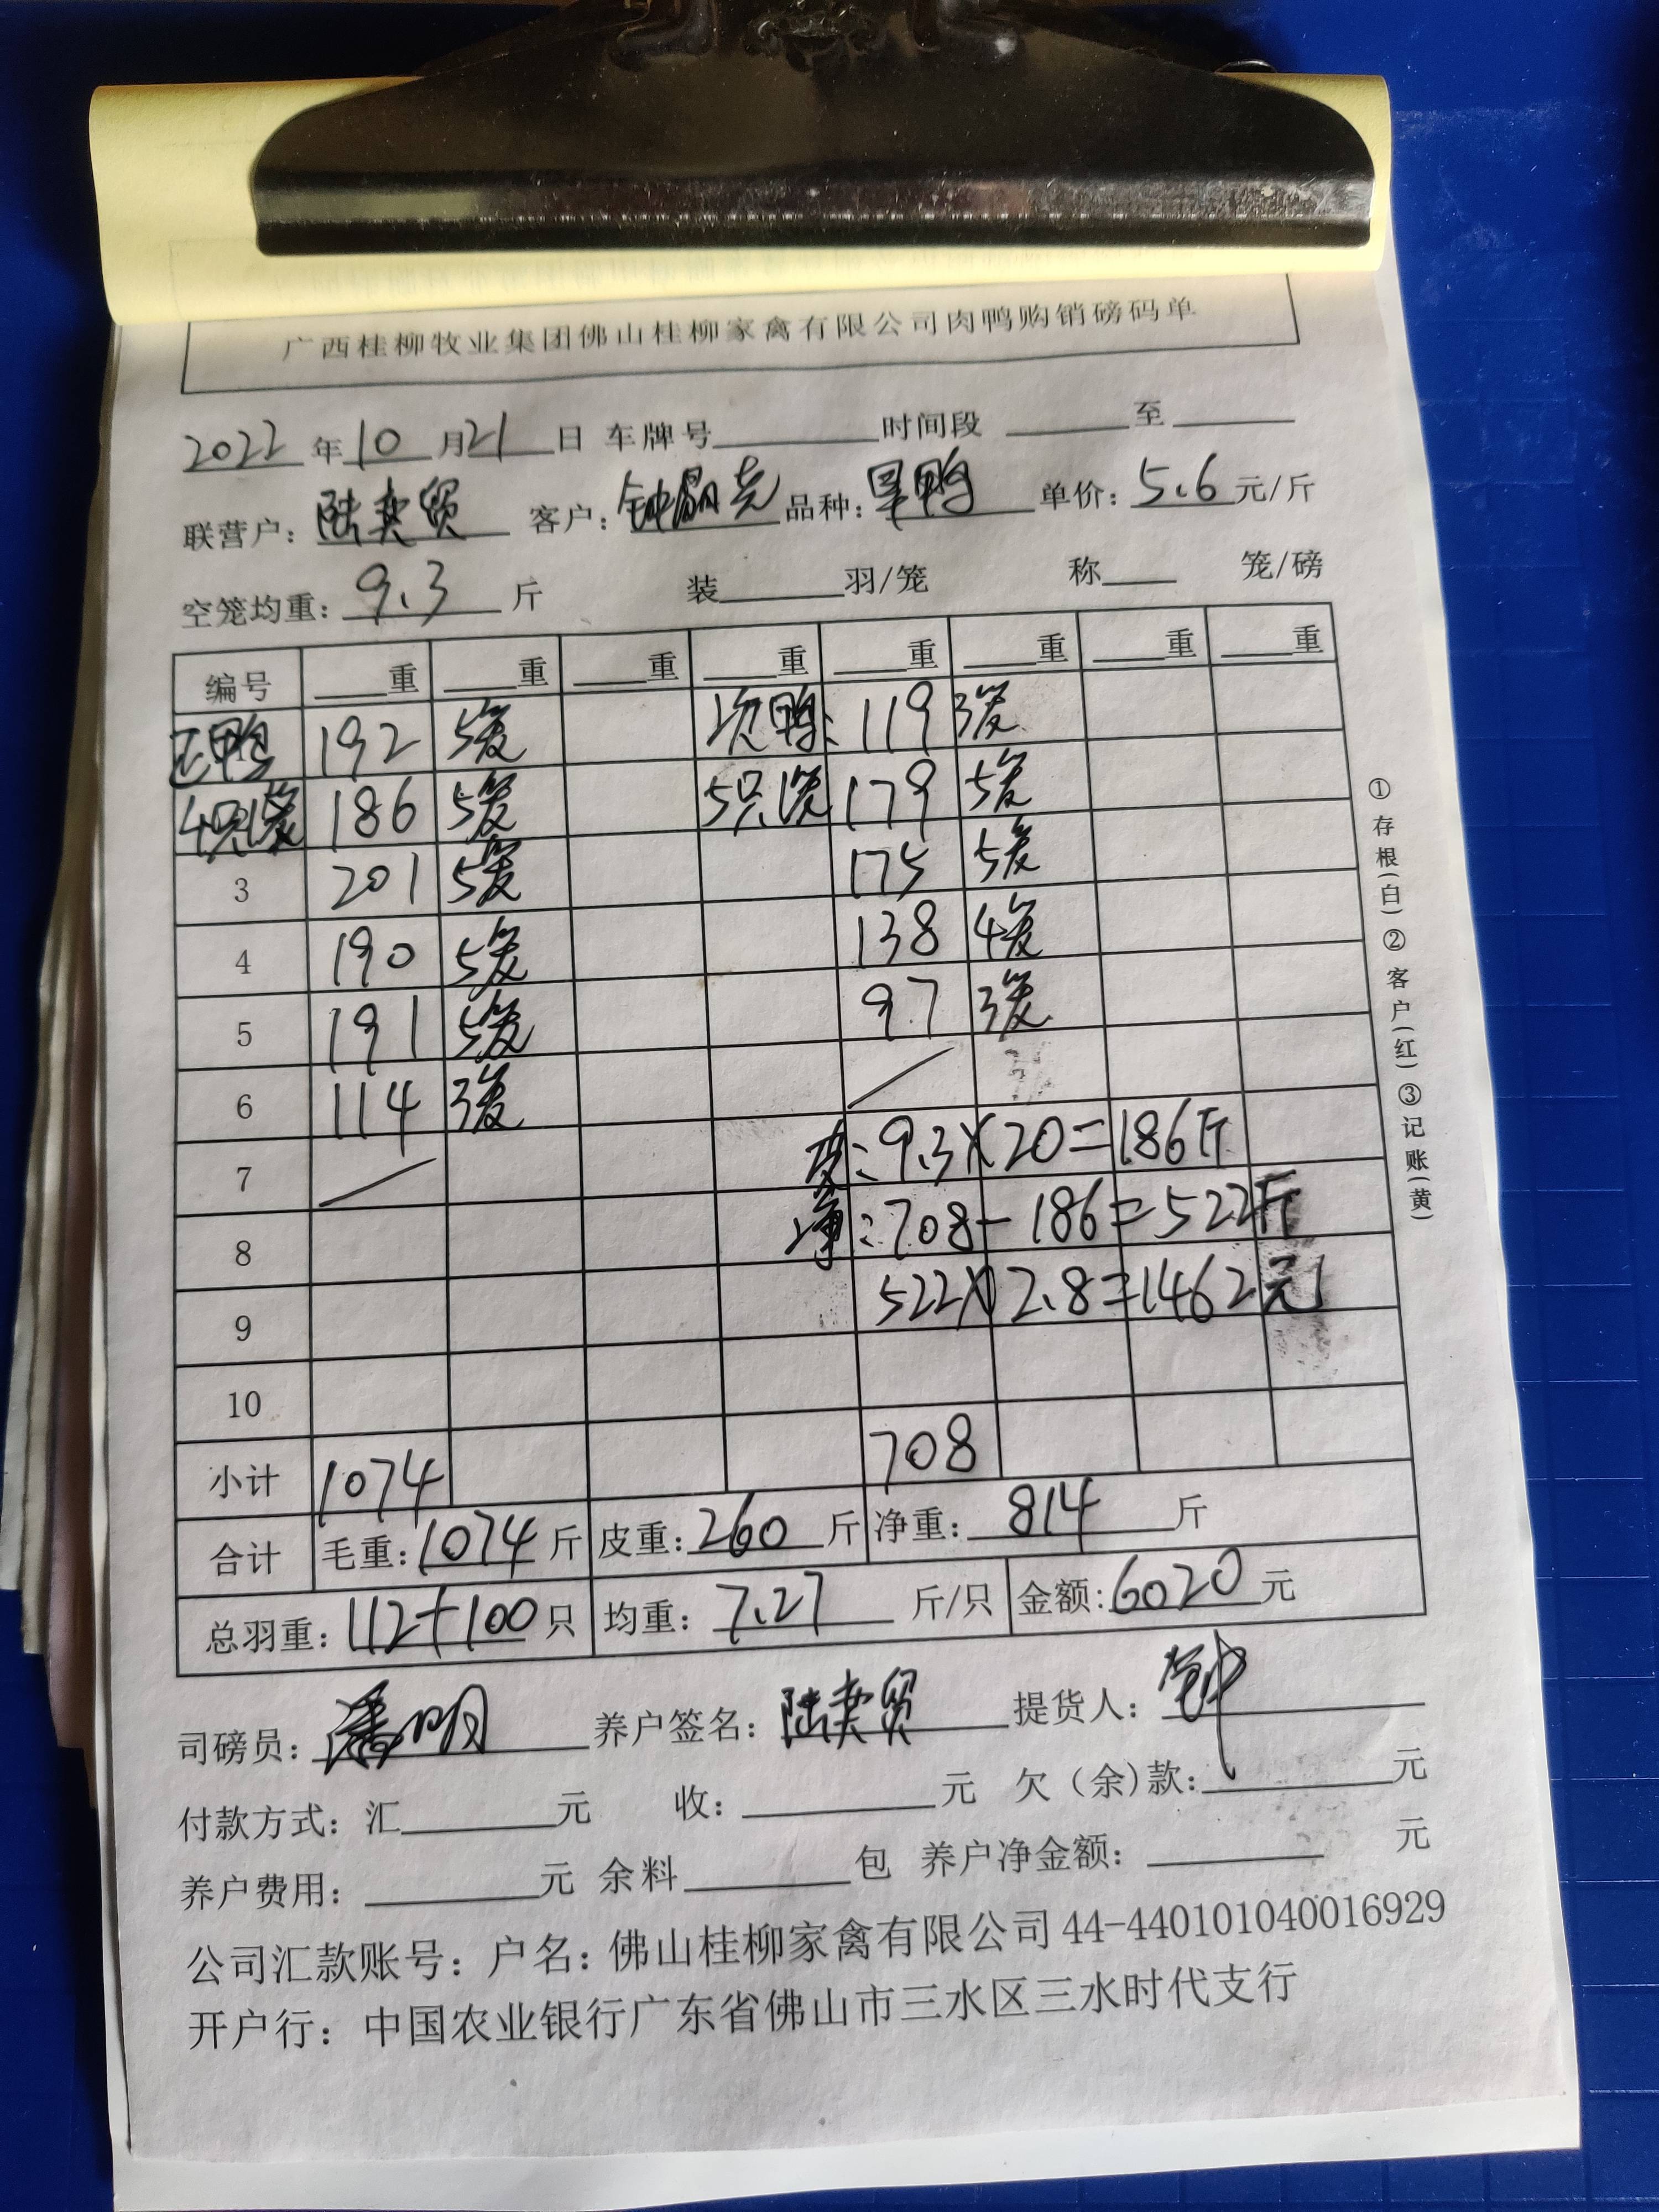 广西桂柳牧业集团佛山桂柳家禽有限公司肉鸭购销磅码单
2022年10月21日 车牌号 时间段 至
联营户：陆 贸 客户：钟 品种：旱鸭 单价：5.6元/斤
空笼均重：9.3斤 装 羽/笼 称 笼/磅
编号 重 重 重 重 重 重 重 重
正鸭 192 5 次鸭： 119 3
4只 186 5 5只 179 5
3 201 5 175 5
4 190 5 138 4
5 191 5 97 3
6 114 3
7 皮：9.3×20=186斤
8 净：708-186=522斤
9 522×2.8=1462元
10
小计 1074 708
合计 毛重：1074斤 皮重：260斤 净重：814斤
总羽重：112+100只 均重：7.27斤/只 金额：6020元
司磅员：潘明 养户签名：陆 贸 提货人：钟
付款方式：汇 元 收： 元 欠（余）款： 元
养户费用： 元 余料 包 养户净金额： 元
公司汇款账号：户名：佛山桂柳家禽有限公司 44-440101040016929
开户行：中国农业银行广东省佛山市三水区三水时代支行
①存根(白)②客户(红)③记账(黄)